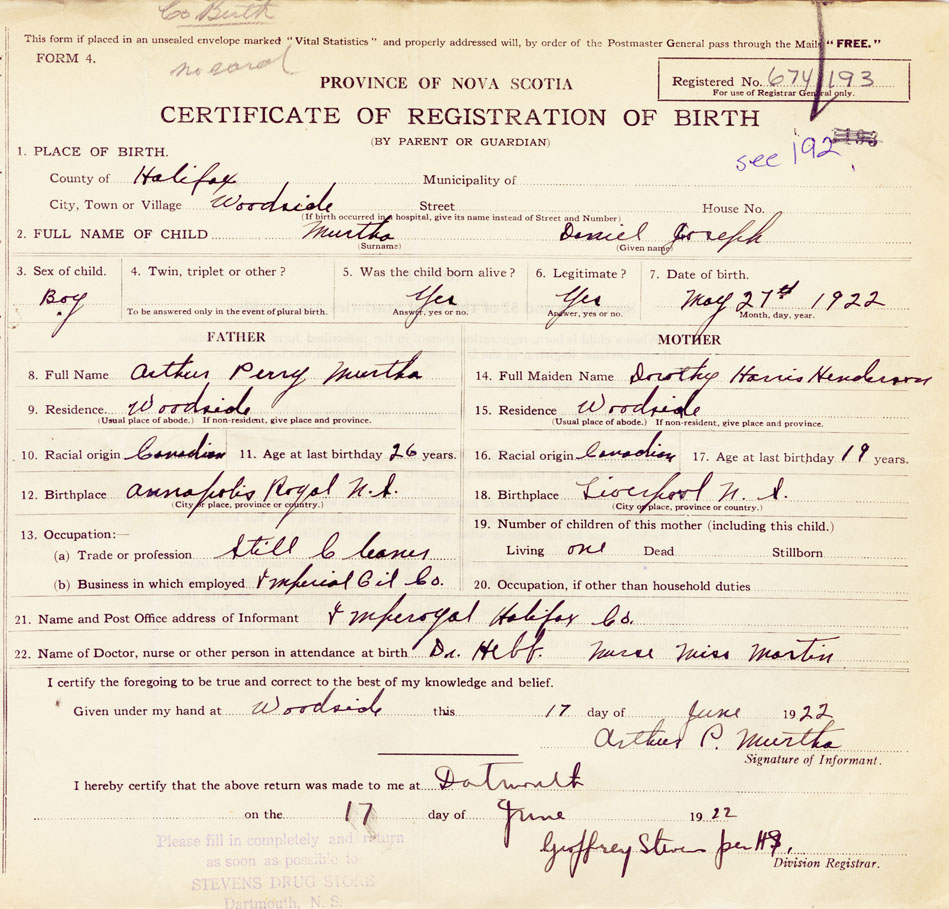 Co Birth
This form if placed in an unsealed envelope marked "Vital Statistics" and properly addressed will, by order of the Postmaster General pass through the Mails "FREE."
FORM 4.
no card
PROVINCE OF NOVA SCOTIA
Registered No. 674 193
For use of Registrar General only.
CERTIFICATE OF REGISTRATION OF BIRTH
(BY PARENT OR GUARDIAN)
see 192 193
1. PLACE OF BIRTH.
County of Halifax Municipality of
City, Town or Village Woodside Street House No.
(If birth occurred in a hospital, give its name instead of Street and Number)
2. FULL NAME OF CHILD Murtha Daniel Joseph
(Surname) (Given name)
3. Sex of child. 4. Twin, triplet or other? 5. Was the child born alive? 6. Legitimate? 7. Date of birth.
Boy Yes Yes May 27th 1922
To be answered only in the event of plural birth. Answer, yes or no. Answer, yes or no. Month, day, year.
FATHER MOTHER
8. Full Name Arthur Perry Murtha 14. Full Maiden Name Dorothy Harris Henderson
9. Residence Woodside 15. Residence Woodside
(Usual place of abode.) If non-resident, give place and province. (Usual place of abode.) If non-resident, give place and province.
10. Racial origin Canadian 11. Age at last birthday 26 years. 16. Racial origin Canadian 17. Age at last birthday 19 years.
12. Birthplace Annapolis Royal N.S. 18. Birthplace Liverpool N.S.
(City or place, province or country.) (City or place, province or country.)
13. Occupation:— 19. Number of children of this mother (including this child.)
(a) Trade or profession Still Cleaner Living one Dead Stillborn
(b) Business in which employed Imperial Oil Co. 20. Occupation, if other than household duties
21. Name and Post Office address of Informant Imperoyal Halifax Co.
22. Name of Doctor, nurse or other person in attendance at birth Dr. Hebb. Nurse Miss Martin
I certify the foregoing to be true and correct to the best of my knowledge and belief.
Given under my hand at Woodside this 17 day of June 1922
Arthur P. Murtha
Signature of Informant.
I hereby certify that the above return was made to me at Dartmouth
on the 17 day of June 1922
Geoffrey Stevens per HS.
Division Registrar.
Please fill in completely and return
as soon as possible to
STEVENS DRUG STORE
Dartmouth, N. S.